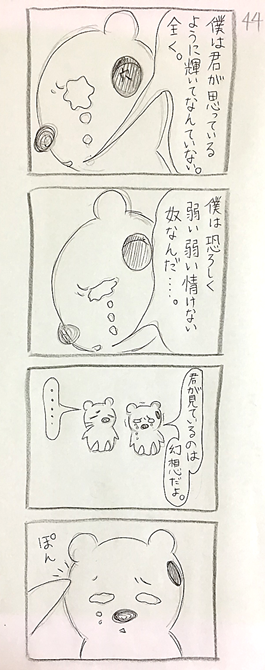 44
僕は君が思っている
ように輝いてなんていない。
全く。
僕は恐ろしく
弱い弱い情けない
奴なんだ…。
君が見ているのは
幻想だよ。
……
ぽん